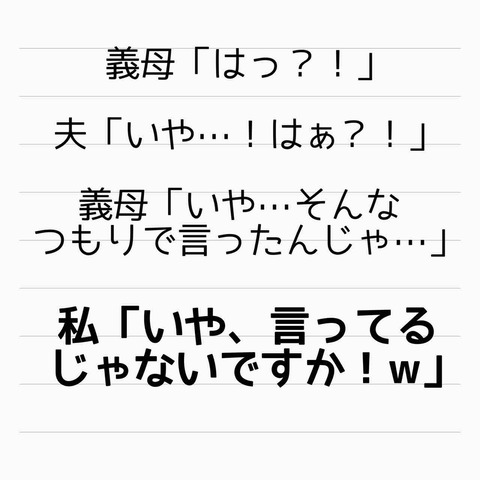 義母「はっ？！」
夫「いや…！はぁ？！」
義母「いや…そんな
つもりで言ったんじゃ…」
私「いや、言ってる
じゃないですか！w」